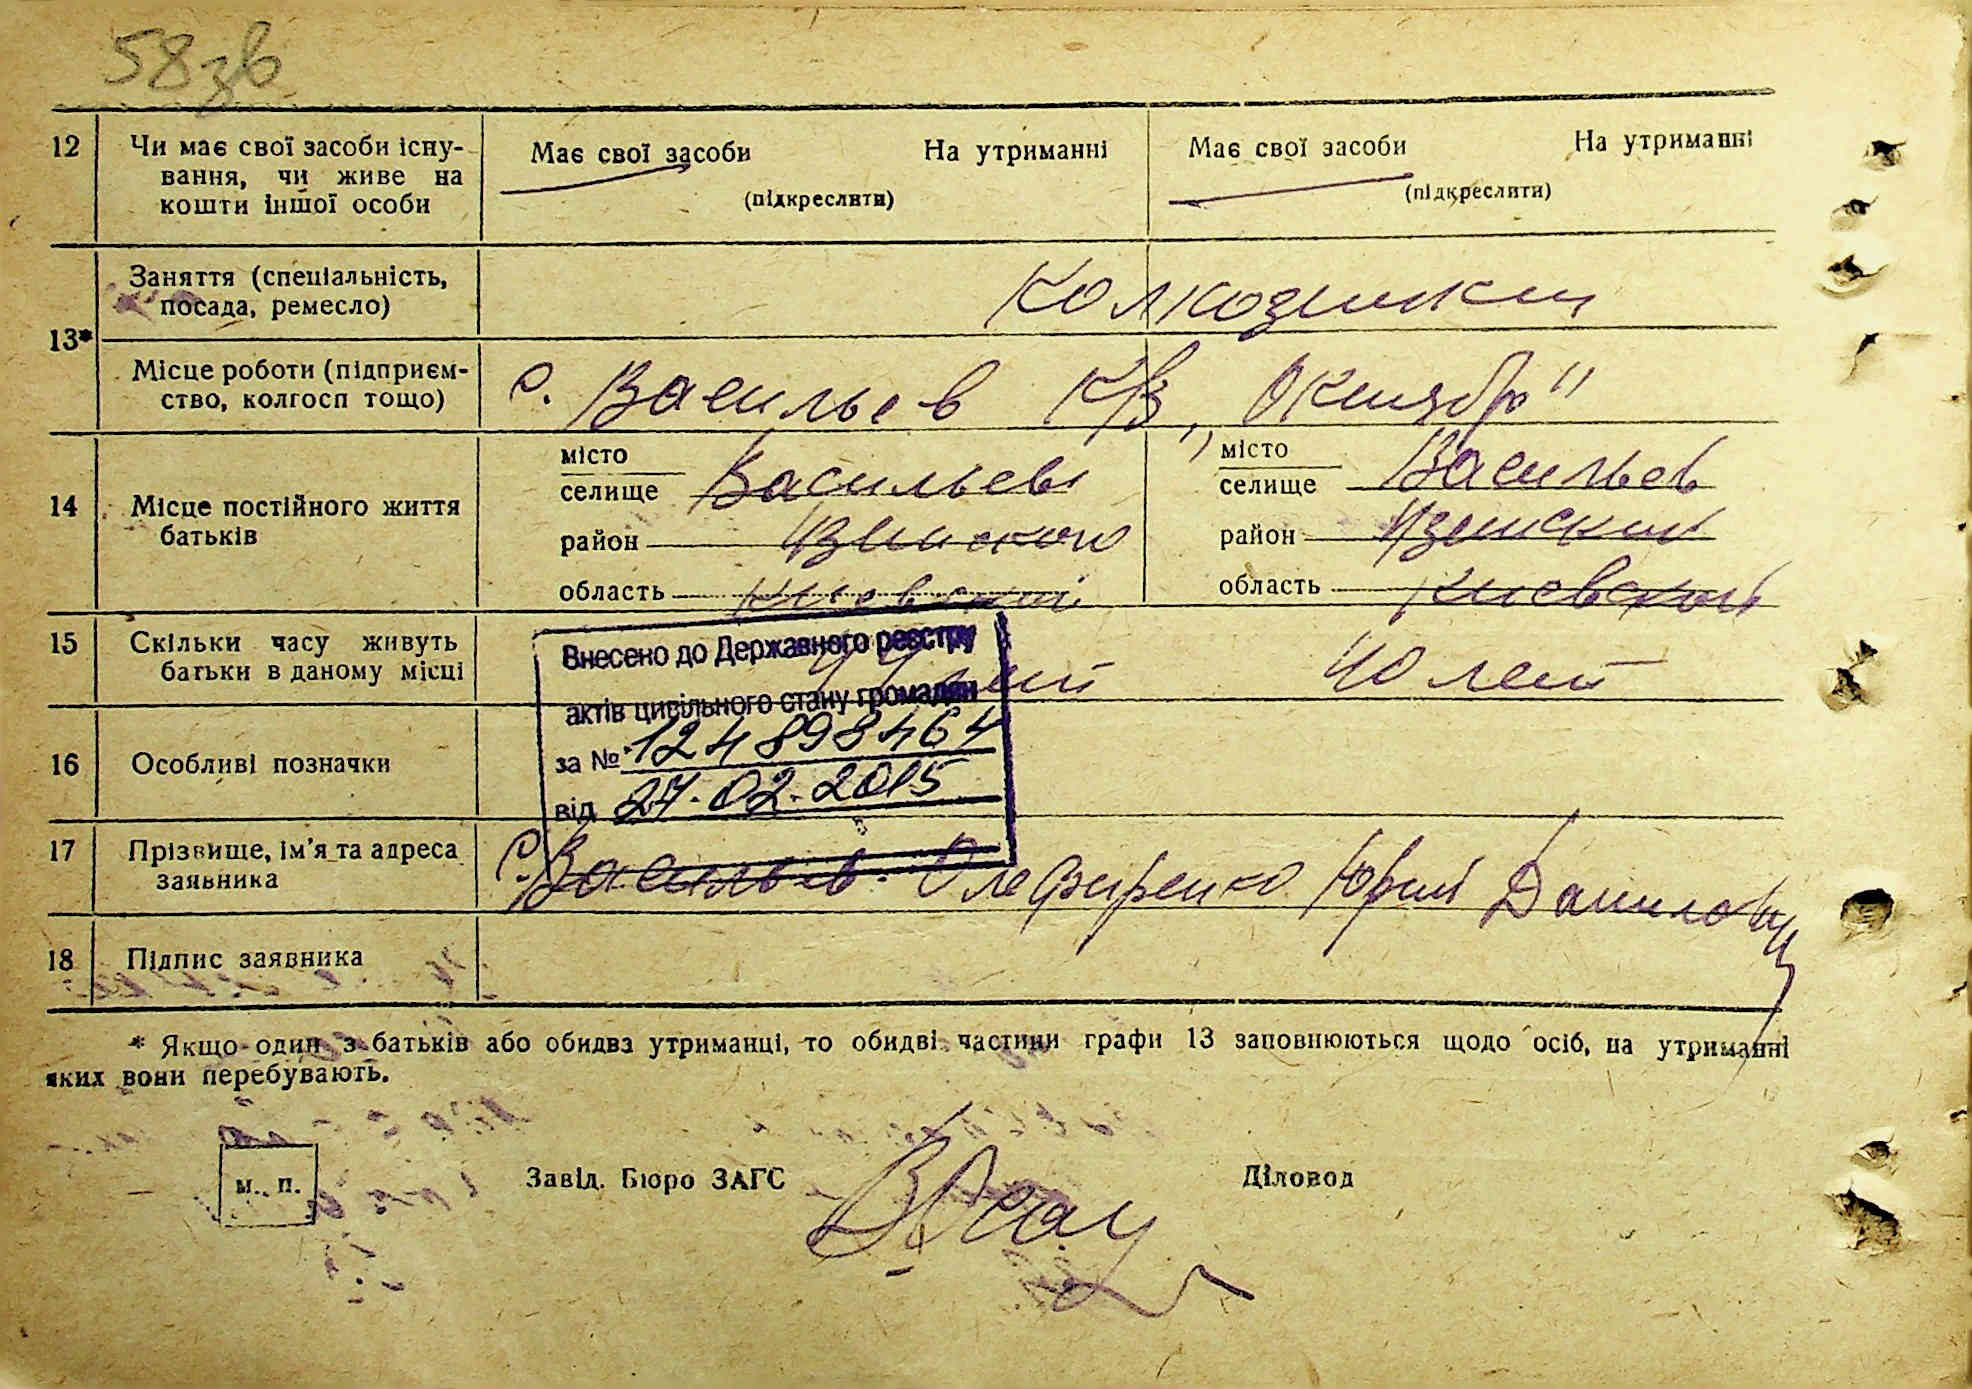 58зв
12 Чи має свої засоби існу-
вання, чи живе на
кошти іншої особи
Має свої засоби На утриманні
(підкреслити)
Має свої засоби На утриманні
(підкреслити)
13*
Заняття (спеціальність,
посада, ремесло)
колхозники
Місце роботи (підприєм-
ство, колгосп тощо)
с. Васильев к/з „Октябрь"
14 Місце постійного життя
батьків
місто
селище Васильев
район
область Киевской
місто
селище Васильев
район
область Киевской
15 Скільки часу живуть
батьки в даному місці
лет
40 лет
16 Особливі позначки
Внесено до Державного реєстру
актів цивільного стану громадян
за №
від 27.02.2015
17 Прізвище, ім'я та адреса
заявника
с. Васильев. Олефиренко Юрий Данилович
18 Підпис заявника
* Якщо один з батьків або обидва утриманці, то обидві частини графи 13 заповнюються щодо осіб, на утриманні
яких вони перебувають.
м. п.
Завід. Бюро ЗАГС
Діловод